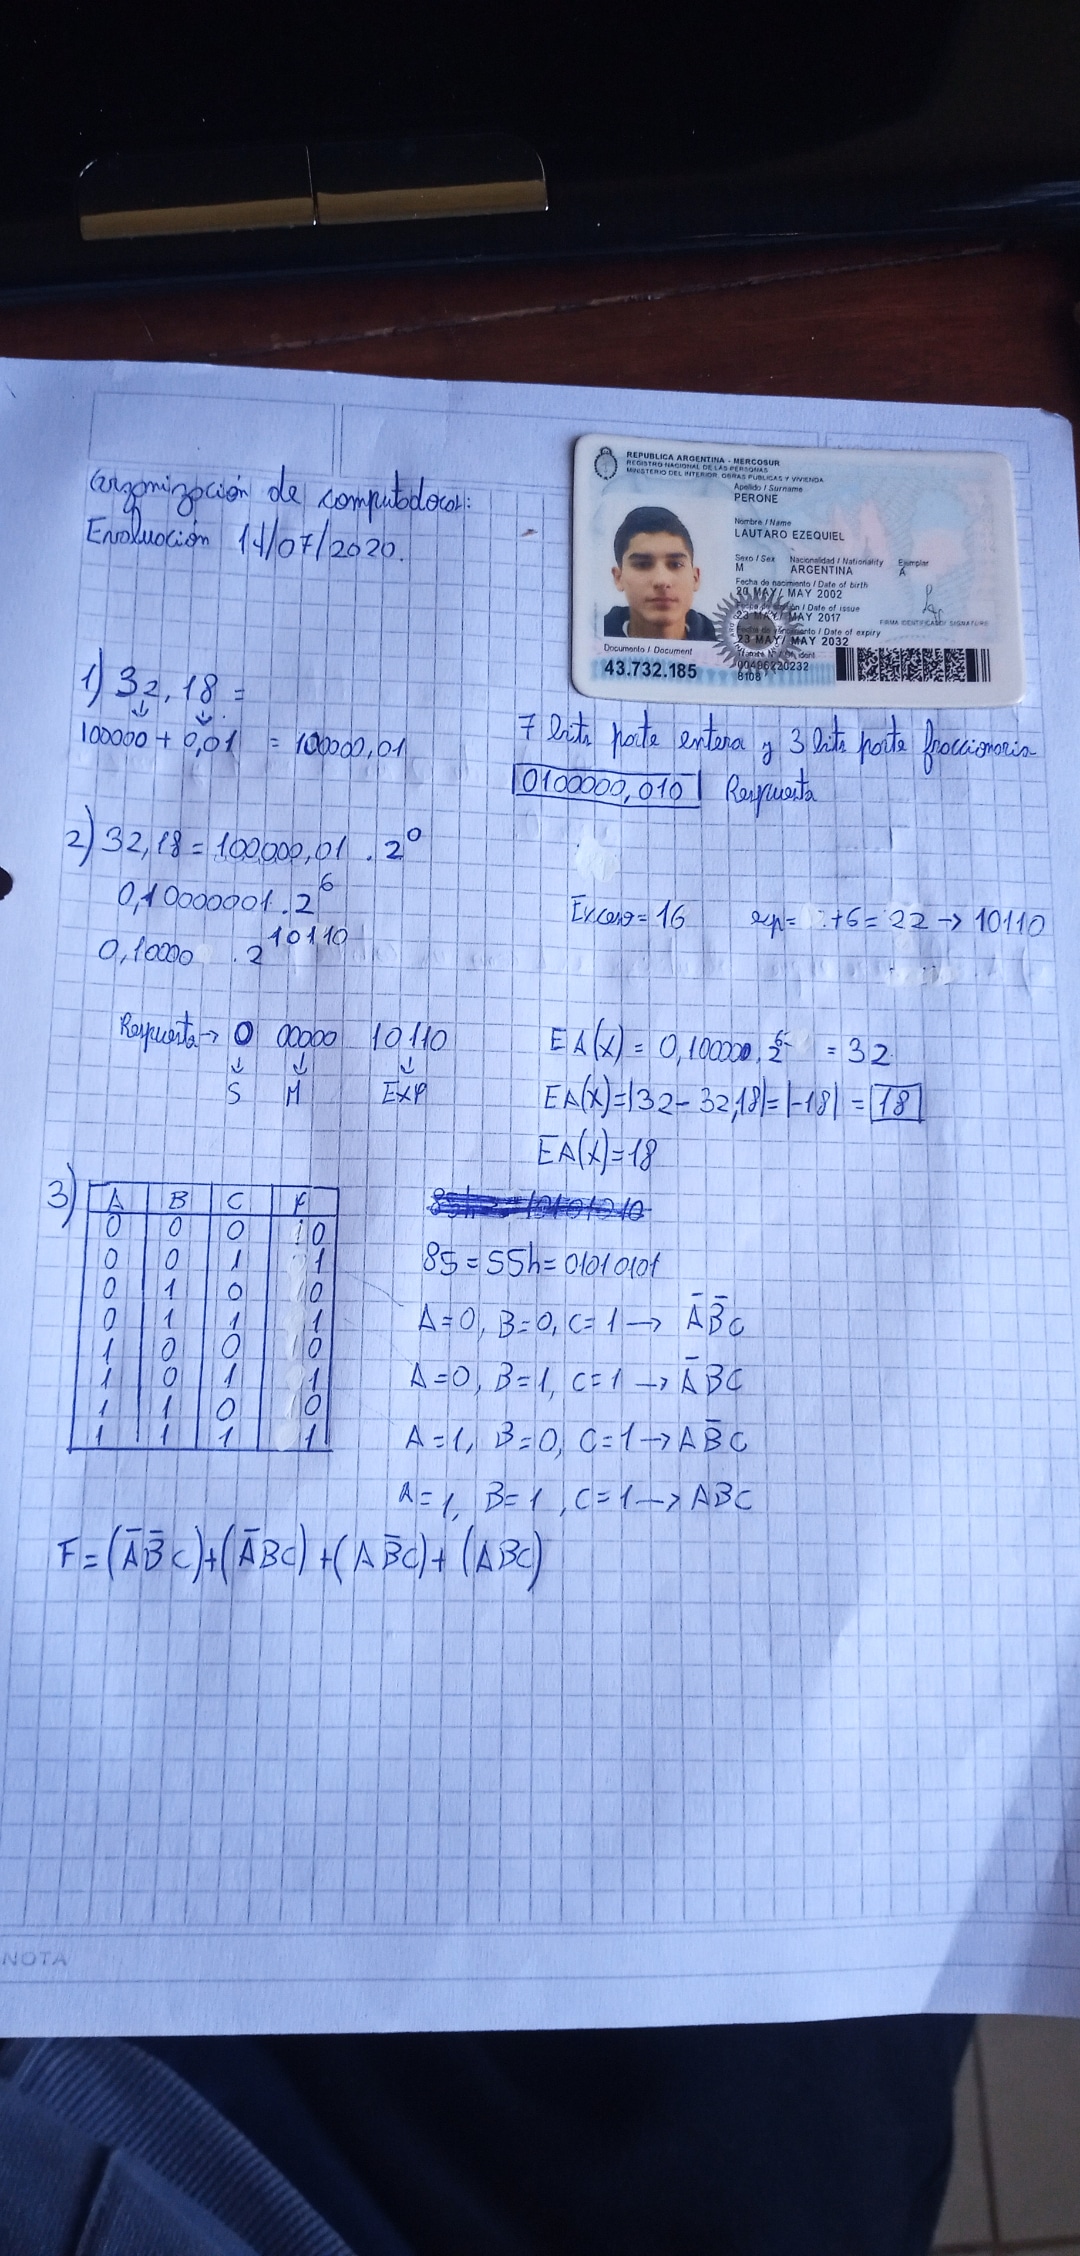 Organización de computadoras:
Evaluación 14/07/2020.
REPUBLICA ARGENTINA - MERCOSUR
REGISTRO NACIONAL DE LAS PERSONAS
MINISTERIO DEL INTERIOR, OBRAS PUBLICAS Y VIVIENDA
Apellido / Surname
PERONE
Nombre / Name
LAUTARO EZEQUIEL
Sexo / Sex Nacionalidad / Nationality Ejemplar
M ARGENTINA A
Fecha de nacimiento / Date of birth
20 MAY/ MAY 2002
Fecha de emisión / Date of issue
23 MAY/ MAY 2017
Fecha de vencimiento / Date of expiry
23 MAY/ MAY 2032
FIRMA IDENTIFICADO / SIGNATURE
Documento / Document
43.732.185
Trámite Nº / Of. ident
00496220232
8108
1) 32,18 =
100000 + 0,01 = 100000,01
7 bits parte entera y 3 bits parte fraccionaria
0100000,010 Respuesta
2) 32,18 = 100000,01 . 2^0
0,10000001 . 2^6
Exceso = 16 exp= +6 = 22 → 10110
0,10000 . 2^10110
Respuesta → 0 00000 10110
S M EXP
EA(X) = 0,100000 . 2^6 = 32
EA(X)=|32 - 32,18|=|-18| = 18
EA(X)=18
3) A B C F
0 0 0 0
0 0 1 1
0 1 0 0
0 1 1 1
1 0 0 0
1 0 1 1
1 1 0 0
1 1 1 1
85 = 55h = 01010101
A=0, B=0, C=1 → A̅ B̅ C
A=0, B=1, C=1 → A̅ B C
A=1, B=0, C=1 → A B̅ C
A=1, B=1, C=1 → A B C
F = (A̅ B̅ C)+(A̅ B C)+(A B̅ C)+(A B C)
NOTA